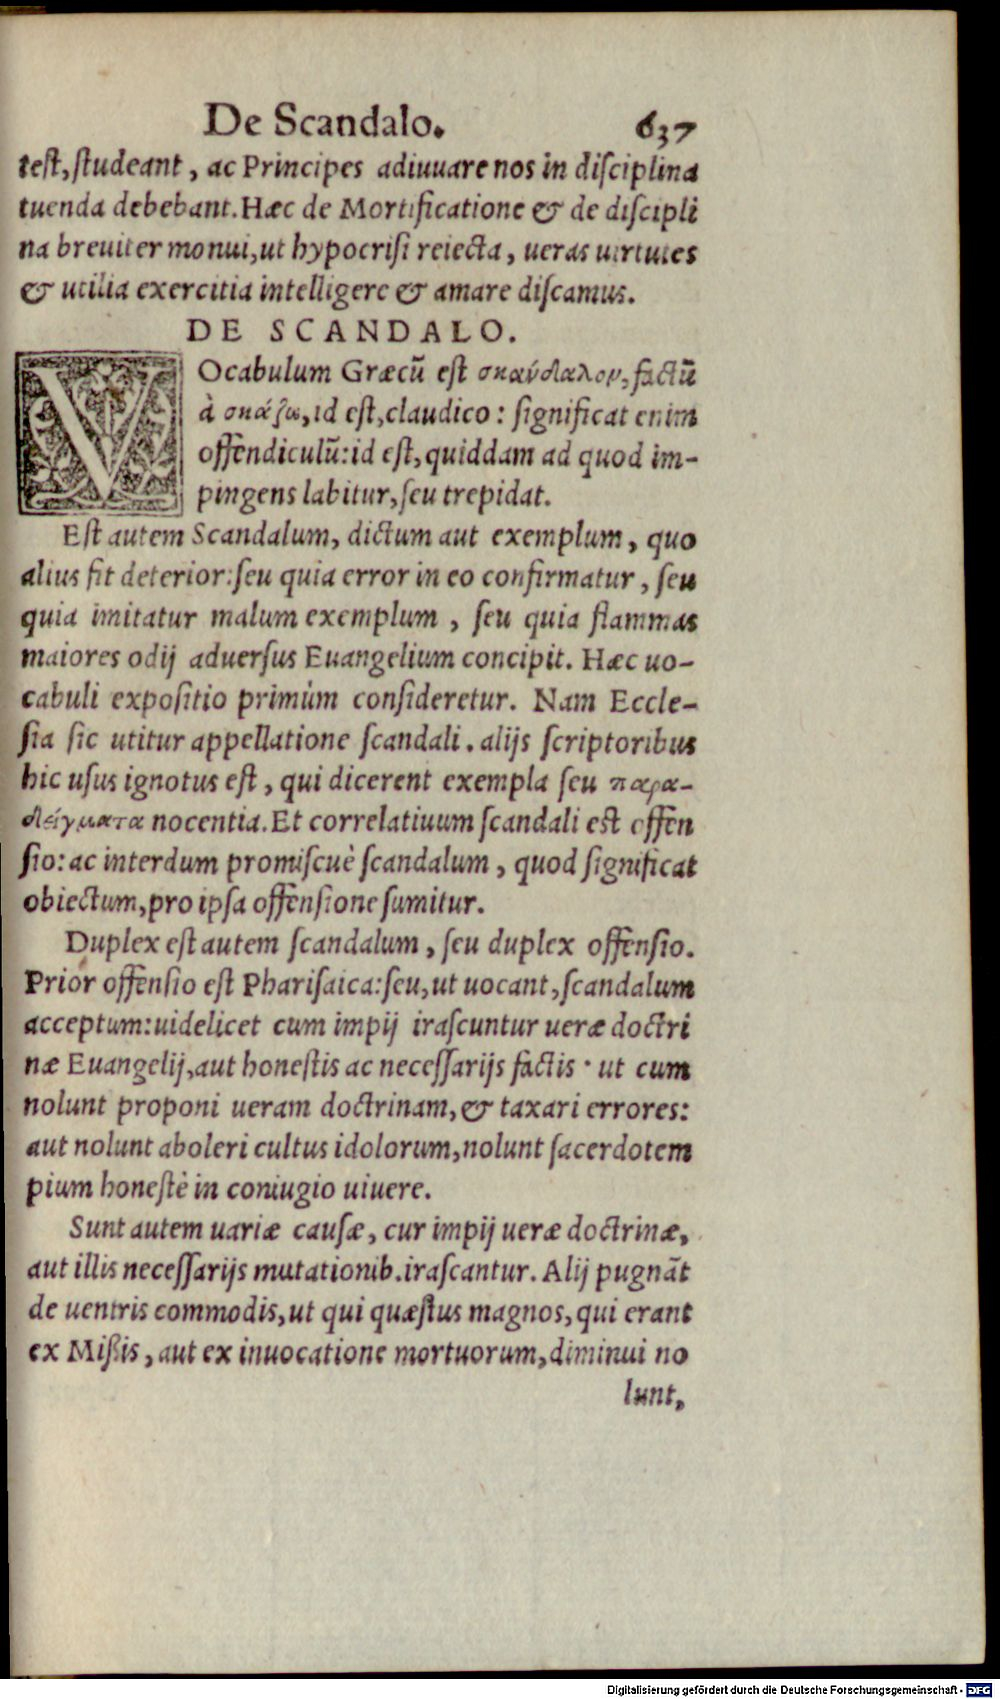 De Scandalo. 637
test, studeant, ac Principes adiuuare nos in disciplina
tuenda debebant. Hæc de Mortificatione & de discipli
na breuiter monui, ut hypocrisi reiecta, ueras uirtutes
& utilia exercitia intelligere & amare discamus.
DE SCANDALO.
VOcabulum Græcū est σκάνδαλον, factū
à σκάζω, id est, claudico: significat enim
offendiculū: id est, quiddam ad quod im-
pingens labitur, seu trepidat.
Est autem Scandalum, dictum aut exemplum, quo
alius fit deterior: seu quia error in eo confirmatur, seu
quia imitatur malum exemplum, seu quia flammas
maiores odij aduersus Euangelium concipit. Hæc uo-
cabuli expositio primùm consideretur. Nam Eccle-
sia sic utitur appellatione scandali. alijs scriptoribus
hic usus ignotus est, qui dicerent exempla seu παρα-
δείγματα nocentia. Et correlatiuum scandali est offen
sio: ac interdum promiscuè scandalum, quod significat
obiectum, pro ipsa offensione sumitur.
Duplex est autem scandalum, seu duplex offensio.
Prior offensio est Pharisaica: seu, ut uocant, scandalum
acceptum: uidelicet cum impij irascuntur ueræ doctri
næ Euangelij, aut honestis ac necessarijs factis · ut cum
nolunt proponi ueram doctrinam, & taxari errores:
aut nolunt aboleri cultus idolorum, nolunt sacerdotem
pium honestè in coniugio uiuere.
Sunt autem uariæ causæ, cur impij ueræ doctrinæ,
aut illis necessarijs mutationib. irascantur. Alij pugnāt
de uentris commodis, ut qui quæstus magnos, qui erant
ex Mißis, aut ex inuocatione mortuorum, diminui no
lunt,
Digitalisierung gefördert durch die Deutsche Forschungsgemeinschaft - DFG